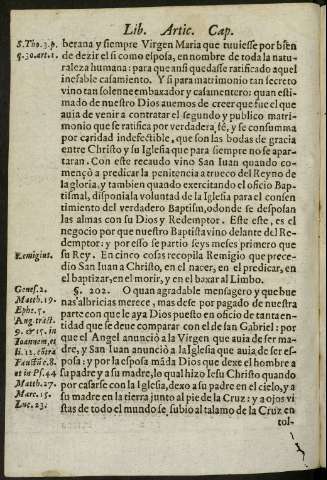 Lib. Artic. Cap.
S. Tho. 3. p.
q. 30. art. 1.
berana y siempre Virgen Maria que tuuiesse por bien
de dezir el si como esposa, en nombre de toda la natu-
raleza humana: para que ansi quedasse ratificado aquel
inefable casamiento. Y si para matrimonio tan secreto
vino tan solenne embaxador y casamentero: quan esti-
mado de nuestro Dios auemos de creer que fue el que
auia de venir a contratar el segundo y publico matri-
monio que se ratifica por verdadera fé, y se consumma
por caridad indefectible, que son las bodas de gracia
entre Christo y su Iglesia que para siempre no se apar-
taran. Con este recaudo vino San Iuan quando co-
mençò a predicar la penitencia a trueco del Reyno de
la gloria, y tambien quando exercitando el oficio Bap-
tismal, disponia la voluntad de la Iglesia para el consen-
timiento del verdadero Baptismo, donde se desposan
las almas con su Dios y Redemptor. Este este, es el
negocio por que nuestro Baptista vino delante del Re-
demptor: y por esso se partio seys meses primero que
Remigius.
su Rey. En cinco cosas recopila Remigio que prece-
dio San Iuan a Christo, en el nacer, en el predicar, en
el baptizar, en el morir, y en el baxar al Limbo.
Genes. 2.
Matth. 19.
Ephe. 5.
Aug. tract.
9. & 15. in
Ioannem, et
li. 12. cõtra
Faustũ c. 8.
et in Ps. 44
Matth. 27.
Marc. 15.
Luc. 23.
§. 202. O quan agradable mensagero y que bue
nas albricias merece, mas dese por pagado de nuestra
parte con que le aya Dios puesto en oficio de tanta en-
tidad que se deue comparar con el de san Gabriel: por
que el Angel anunciò a la Virgen que auia de ser ma-
dre, y San Iuan anunciò a la Iglesia que auia de ser es-
posa: y por la esposa mãda Dios que dexe el hombre a
su padre y a su madre, lo qual hizo Iesu Christo quando
por casarse con la Iglesia, dexo a su padre en el cielo, y a
su madre en la tierra junto al pie de la Cruz: y a ojos vi
stas de todo el mundo se, subio al talamo de la Cruz en
tol-